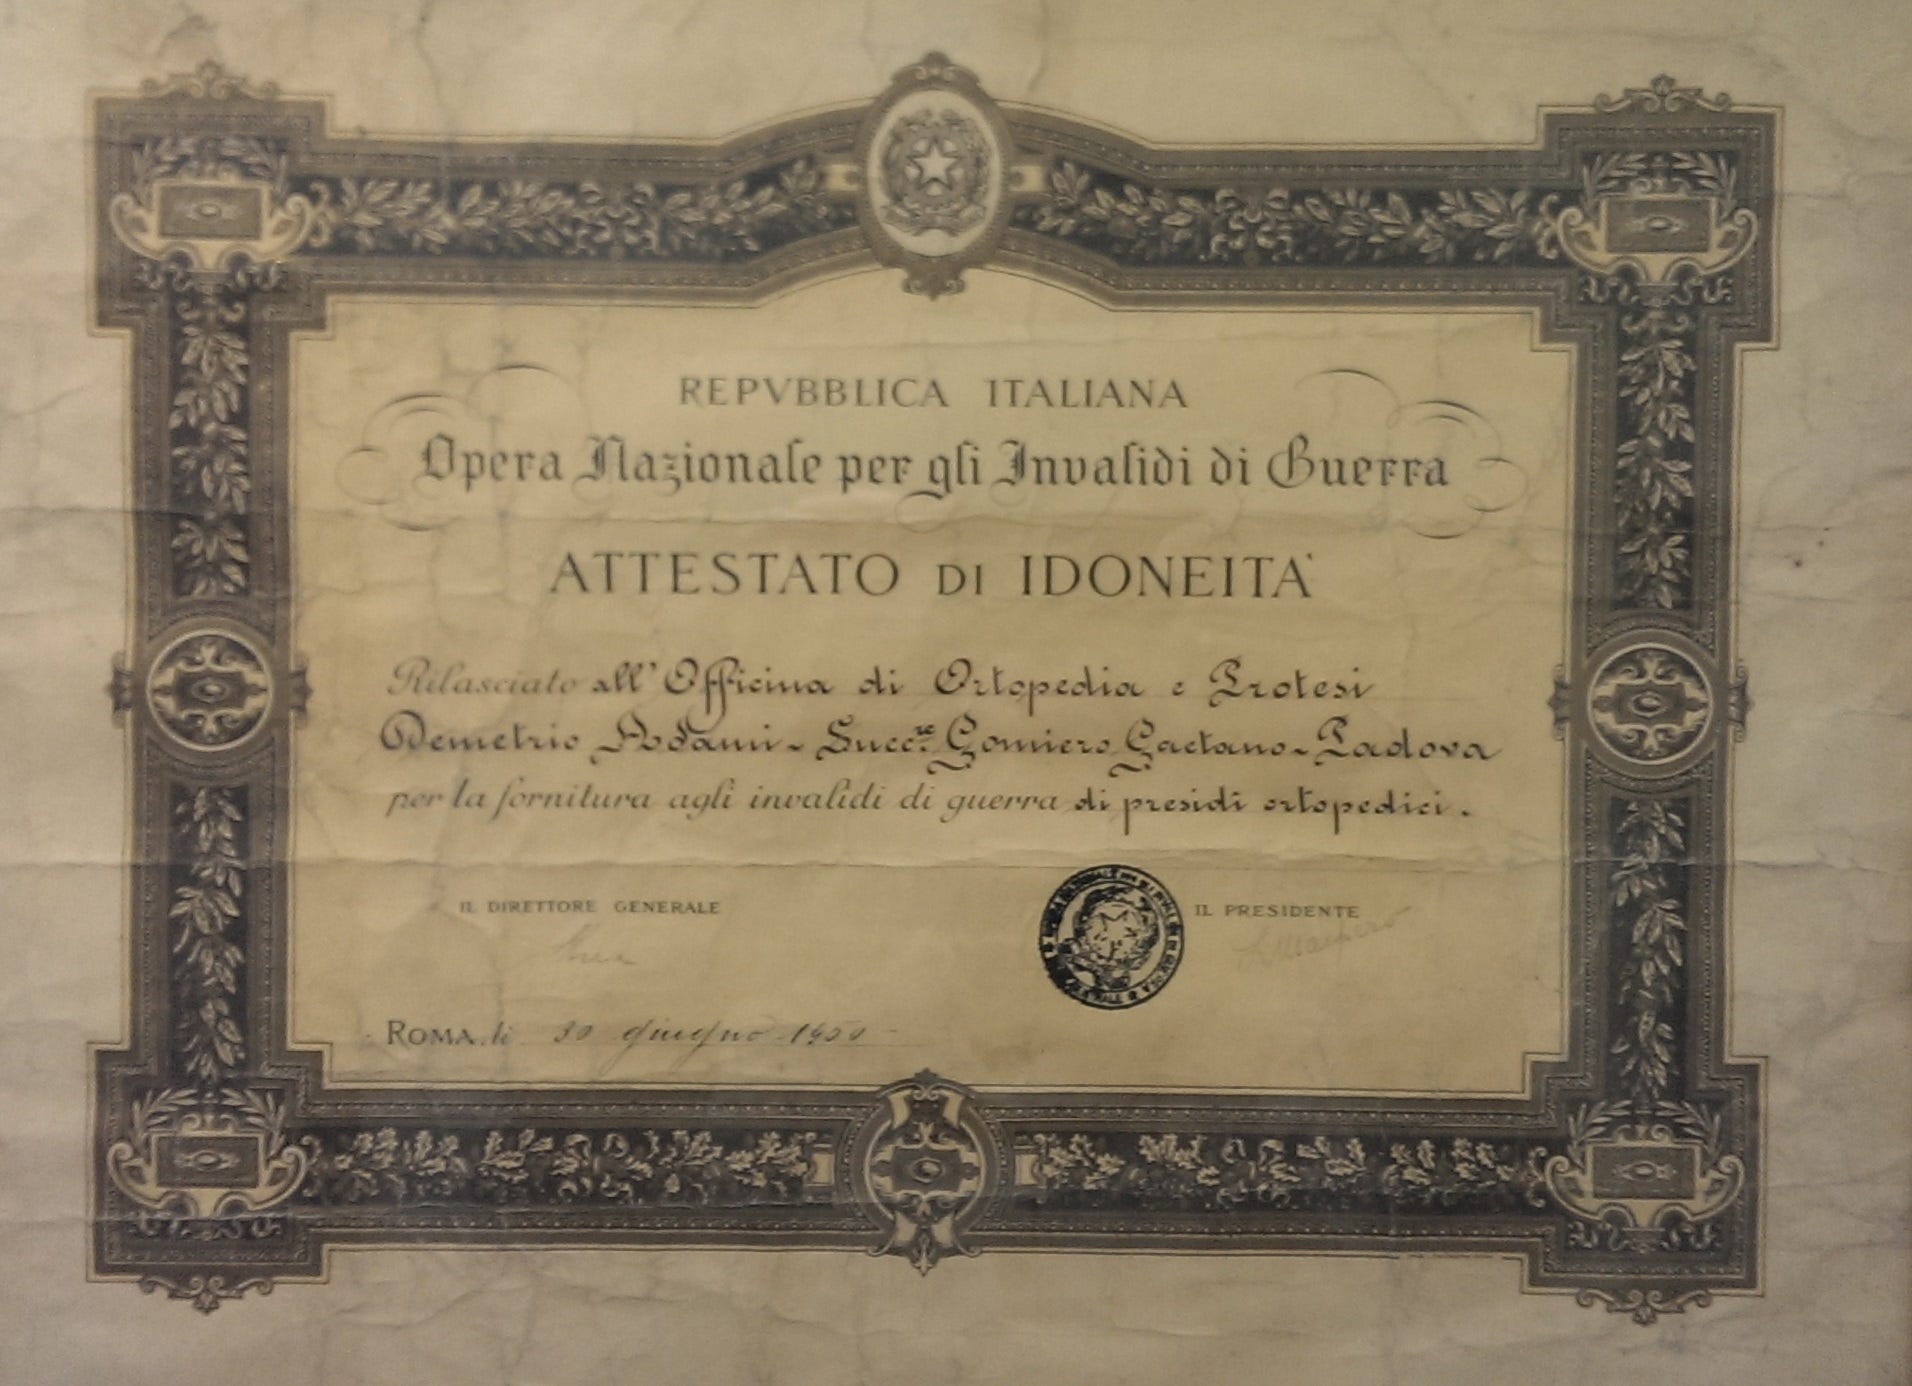 REPVBBLICA ITALIANA
Opera Nazionale per gli Invalidi di Guerra
ATTESTATO DI IDONEITA'
Rilasciato all'Officina di Ortopedia e Protesi
Demetrio Addami - Succ.re Gomiero Gaetano - Padova
per la fornitura agli invalidi di guerra di presidi ortopedici.
IL DIRETTORE GENERALE
IL PRESIDENTE
ROMA, li 30 giugno 1950